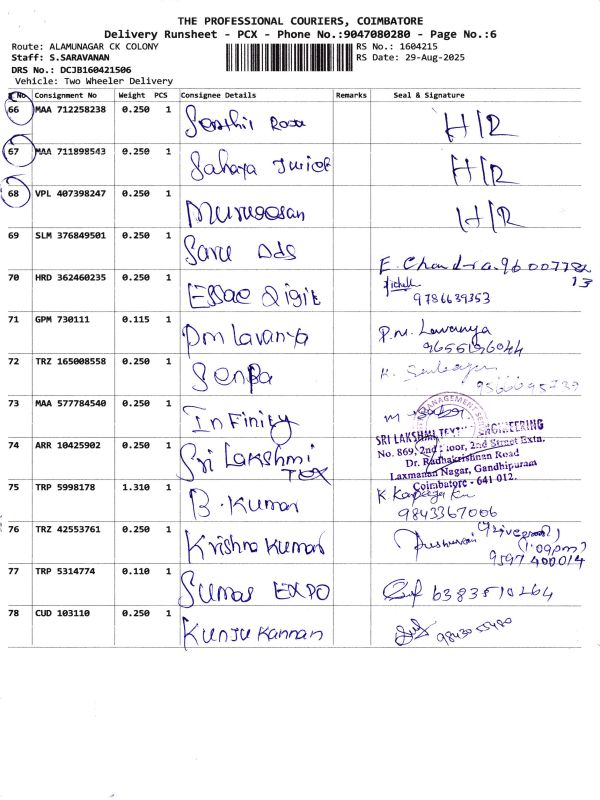 THE PROFESSIONAL COURIERS, COIMBATORE
Delivery Runsheet - PCX - Phone No.:9047080280 - Page No.:6
Route: ALAMUNAGAR CK COLONY
Staff: S.SARAVANAN
DRS No.: DCJB160421506
Vehicle: Two Wheeler Delivery
RS No.: 1604215
RS Date: 29-Aug-2025
S.No. Consignment No Weight PCS Consignee Details Remarks Seal & Signature
66 MAA 712258238 0.250 1 Senthil H/R
67 MAA 711898543 0.250 1 Sahaya H/R
68 VPL 407398247 0.250 1 Murugesan H/R
69 SLM 376849501 0.250 1 Saru Ads E. Chandra. 96007782
13
70 HRD 362460235 0.250 1 Essae Digit
9786639353
71 GPM 730111 0.115 1 Pm lavanya P.M. Lavanya
72 TRZ 165008558 0.250 1
73 MAA 577784540 0.250 1 InFinity
MANAGEMENT
SRI LAKSHMI TEXT ENGINEERING
74 ARR 10425902 0.250 1 Sri Lakshmi
TEX
No. 869, 2nd Floor, 2nd Street Extn.
Dr. Radhakrishnan Road
Laxmanan Nagar, Gandhipuram
Coimbatore - 641 012.
75 TRP 5998178 1.310 1 B. Kumar
9843367006
76 TRZ 42553761 0.250 1 Krishna Kumar
(1:09pm)
9597400014
77 TRP 5314774 0.110 1 Sumar EXPO 6383510264
78 CUD 103110 0.250 1 Kunju Kannan